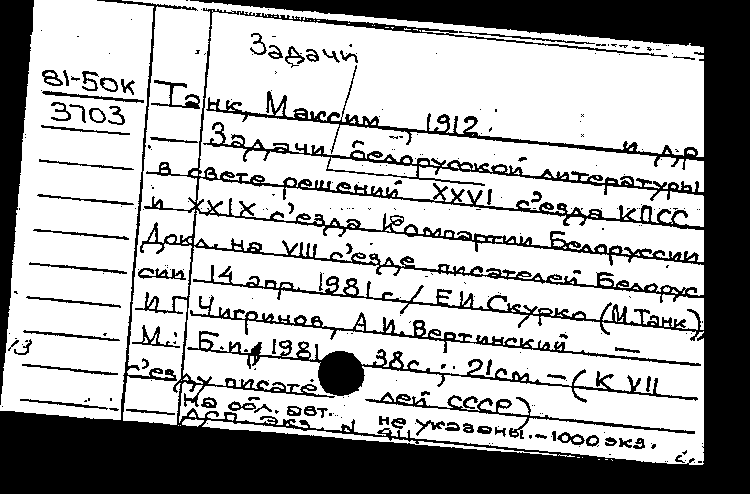 Задачи
81-50к
3703
Танк, Максим, 1912. и др
Задачи белорусской литературы
в свете решений XXVI с'езда КПСС
и XXIX с'езда Компартии Белоруссии
Докл. на VIII с'езде писателей Белорус
сии 14 апр. 1981 г. / Е.И. Скурко (М. Танк),
И.Г. Чигринов, А.И. Вертинский. —
М.: Б.и., 1981 38 с.; 21 см. – (К VII
с'езду писателей СССР).
На обл. авт. не указаны. – 1000 экз.
ДСП. экз. N 911
13